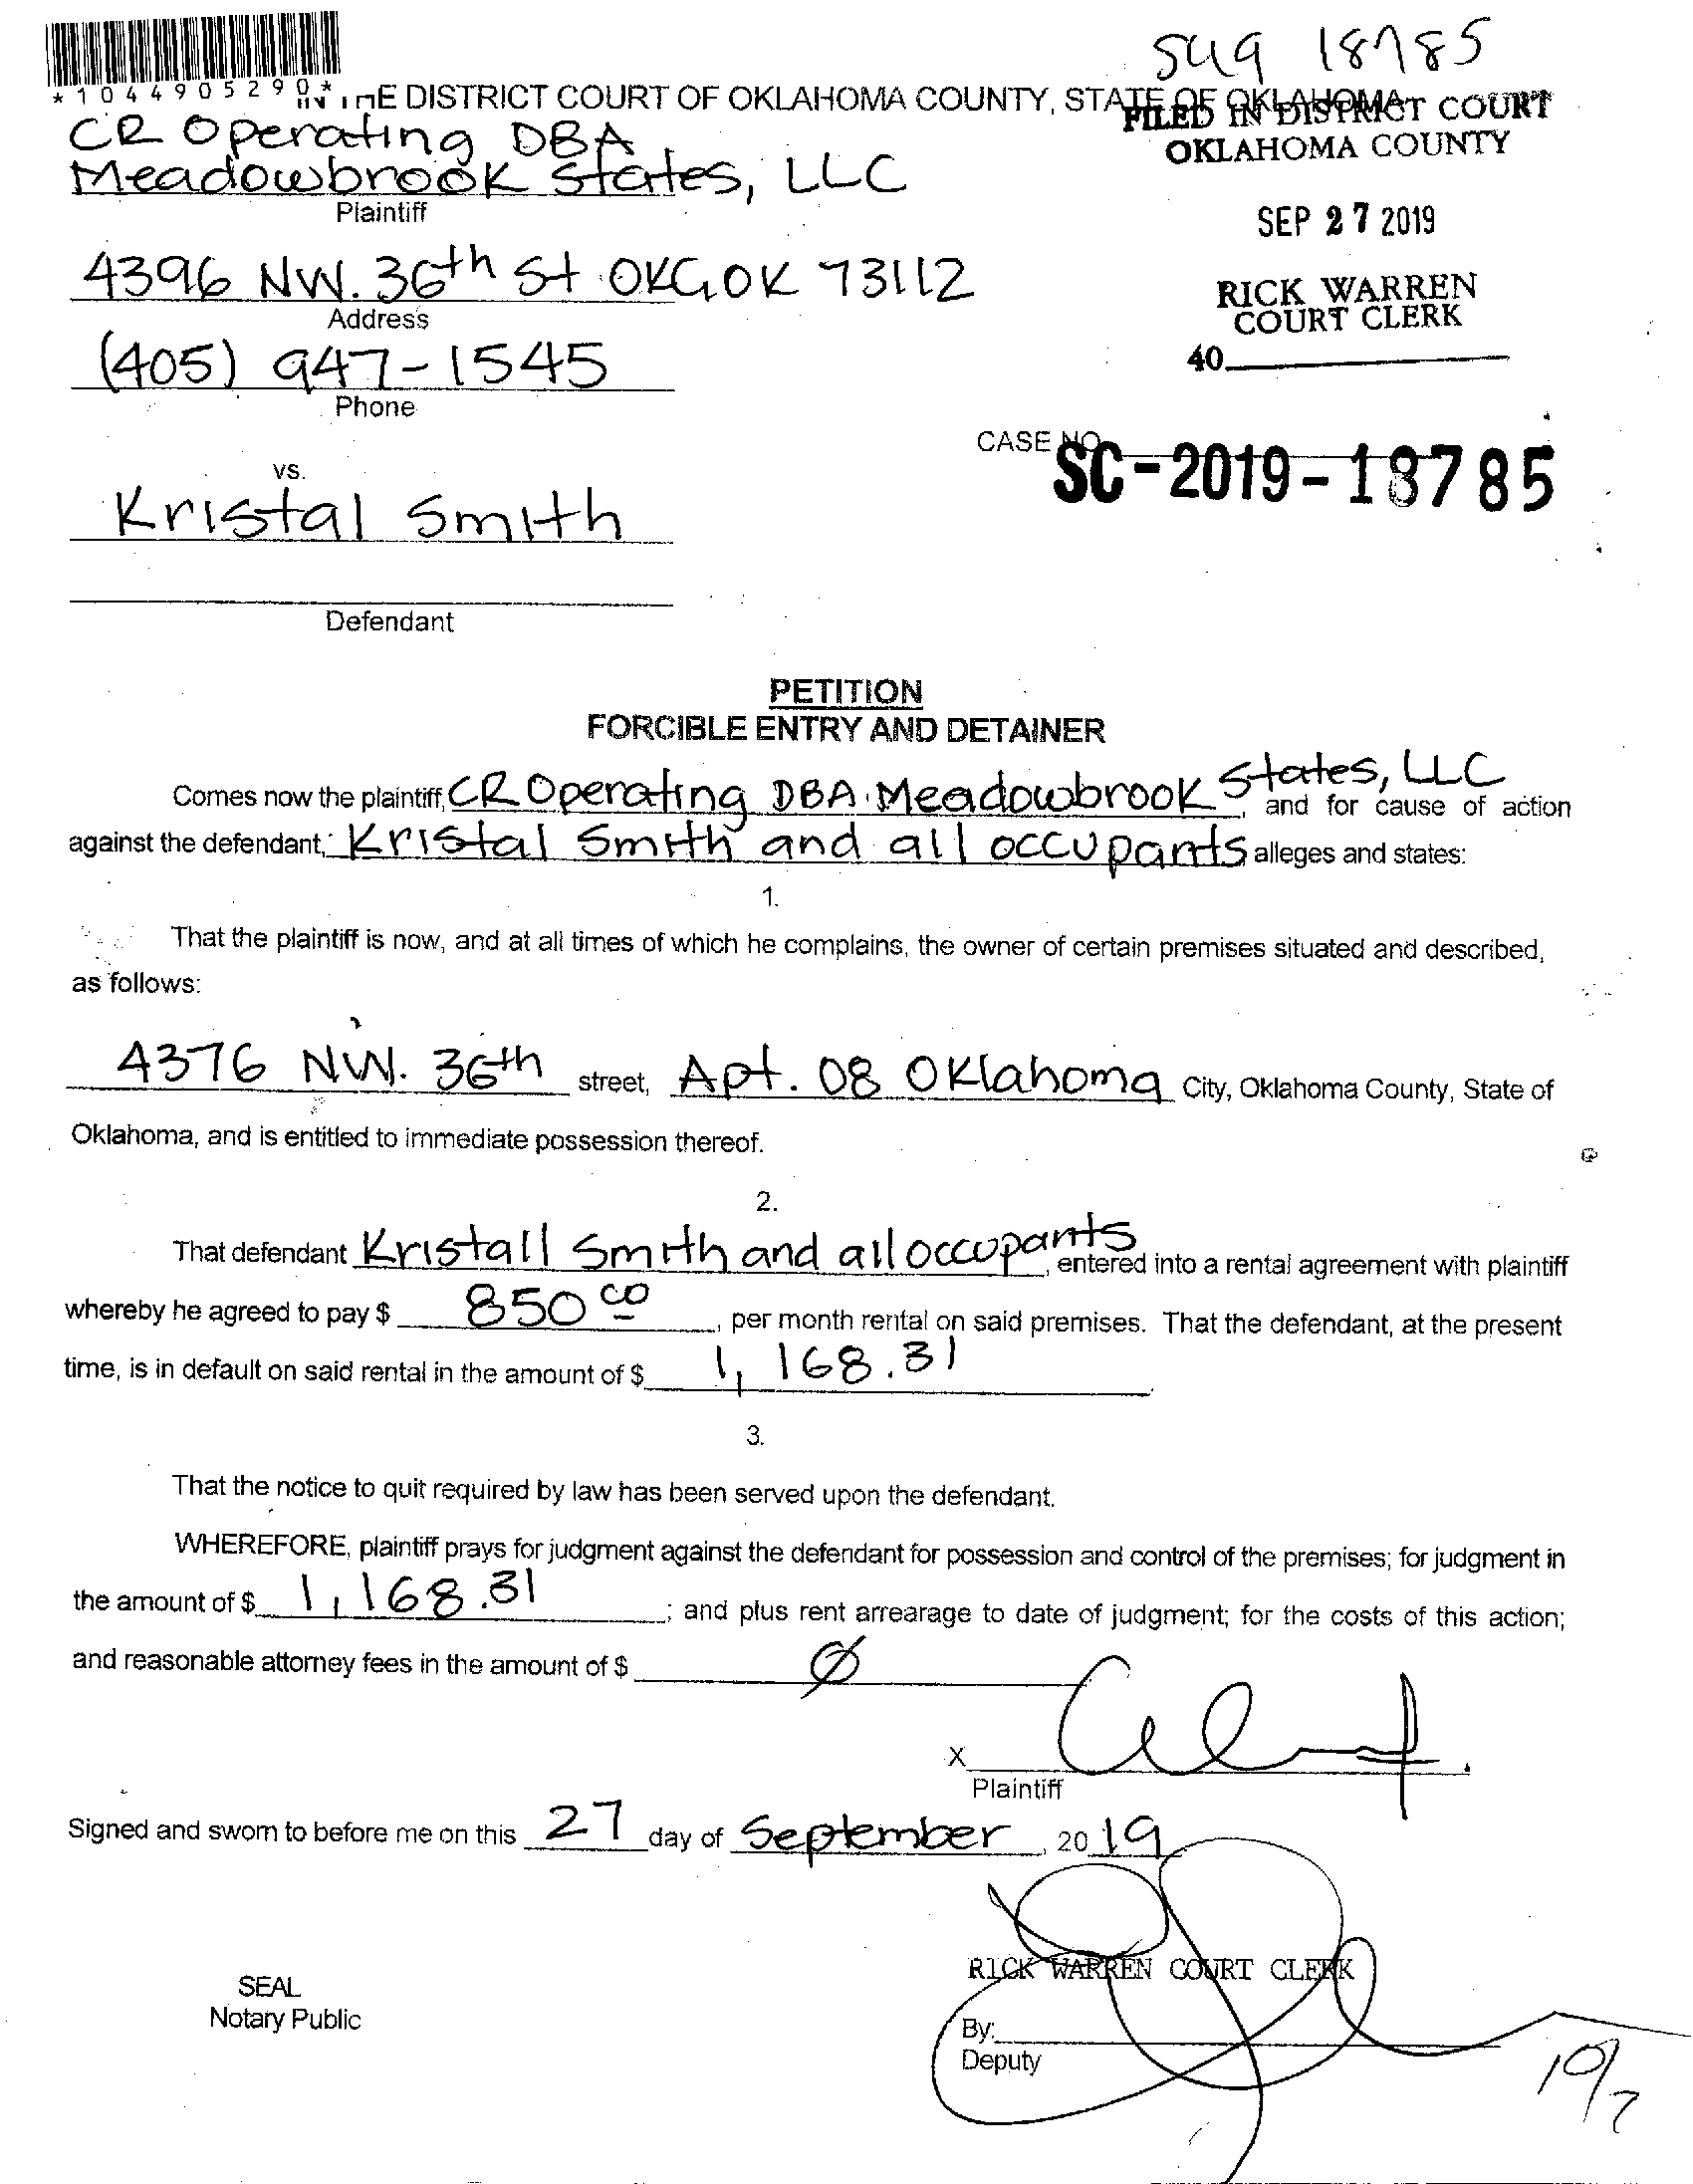 SC19 18785
*1044905290*
IN THE DISTRICT COURT OF OKLAHOMA COUNTY, STATE OF OKLAHOMA
FILED IN DISTRICT COURT
OKLAHOMA COUNTY
CR Operating DBA
Meadowbrook States, LLC
Plaintiff
SEP 27 2019
4396 NW. 36th St OKC, OK 73112
Address
RICK WARREN
COURT CLERK
(405) 947-1545
Phone
40
CASE NO. SC-2019-18785
vs.
Kristal Smith
Defendant
PETITION
FORCIBLE ENTRY AND DETAINER
Comes now the plaintiff, CR Operating DBA Meadowbrook States, LLC, and for cause of action
against the defendant, Kristal Smith and all occupants alleges and states:
1.
That the plaintiff is now, and at all times of which he complains, the owner of certain premises situated and described,
as follows:
4376 NW. 36th street, Apt. 08 Oklahoma City, Oklahoma County, State of
Oklahoma, and is entitled to immediate possession thereof.
2.
That defendant Kristall Smith and all occupants, entered into a rental agreement with plaintiff
whereby he agreed to pay $ 850 00, per month rental on said premises. That the defendant, at the present
time, is in default on said rental in the amount of $ 1,168.31
3.
That the notice to quit required by law has been served upon the defendant.
WHEREFORE, plaintiff prays for judgment against the defendant for possession and control of the premises; for judgment in
the amount of $ 1,168.31; and plus rent arrearage to date of judgment; for the costs of this action;
and reasonable attorney fees in the amount of $ Ø
X
Plaintiff
Signed and sworn to before me on this 27 day of September, 20 19
RICK WARREN COURT CLERK
SEAL
Notary Public
By:
Deputy
10/7